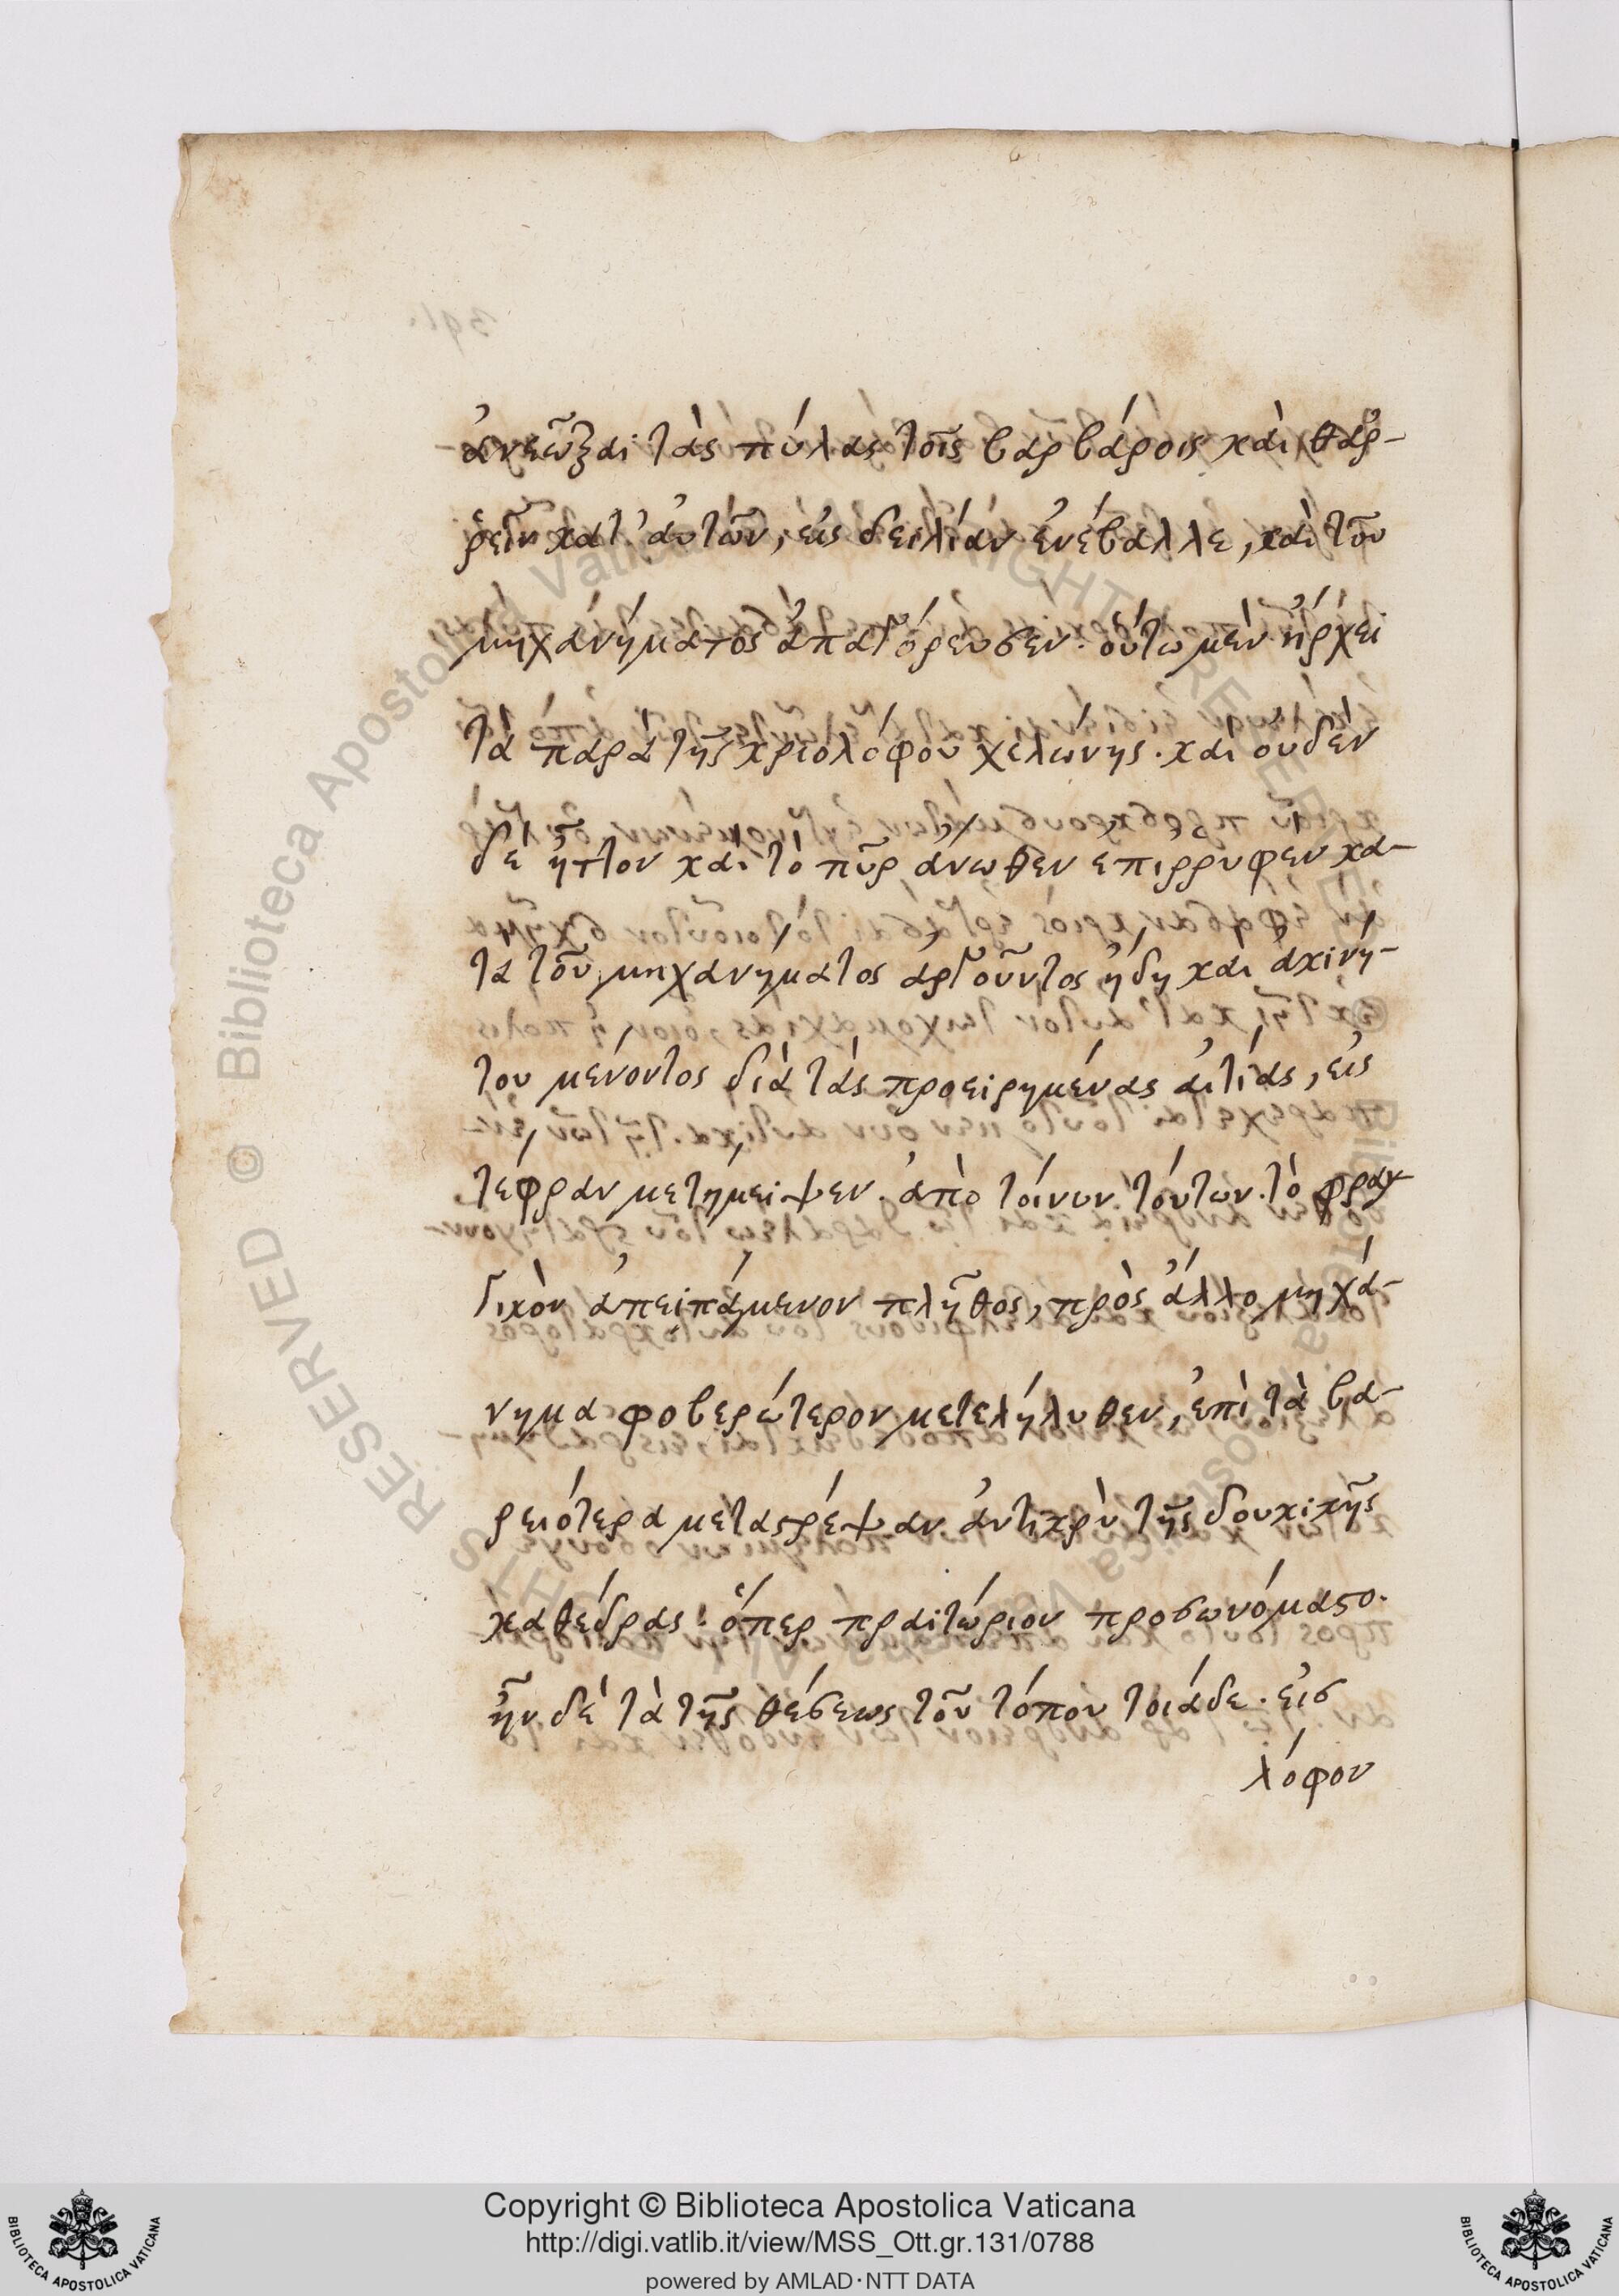 ἀνεῶξαι τὰς πύλας τοῖς βαρβάροις καὶ θαῤ-
ῥεῖν κατ' αὐτῶν, εἰς δειλίαν ἐνέβαλλε, καὶ τοῦ
μηχανήματος ἀπαγόρευσεν. οὕτω μὲν ἤρκει
τὰ παρὰ τῆς κριολόφου χελώνης. καὶ οὐδὲν
δὲ ἧττον καὶ τὸ πῦρ ἄνωθεν ἐπιρρυφὲν κα-
τα τοῦ μηχανήματος ἀργοῦντος ἤδη καὶ ἀκινή-
του μένοντος διὰ τὰς προειρημένας αἰτίας, εἰς
τέφραν μετήμειψεν. ἀπὸ τοίνυν τούτων τὸ φραγ-
γικὸν ἀπειπάμενον πλῆθος, πρὸς ἄλλο μηχά-
νημα φοβερώτερον μετελήλυθεν, ἐπὶ τὰ βα-
ρειότερα μεταστρέψαν ἀντικρὺ τῆς δουκικῆς
καθέδρας· ὅπερ πραιτώριον προσωνόμαστο.
ἦν δὲ τὰ τῆς θέσεως τοῦ τόπου τοιάδε. εἰσ
λόφον
3 91.
Copyright © Biblioteca Apostolica Vaticana
http://digi.vatlib.it/view/MSS_Ott.gr.131/0788
powered by AMLAD·NTT DATA
BIBLIOTECA APOSTOLICA VATICANA
BIBLIOTECA APOSTOLICA VATICANA